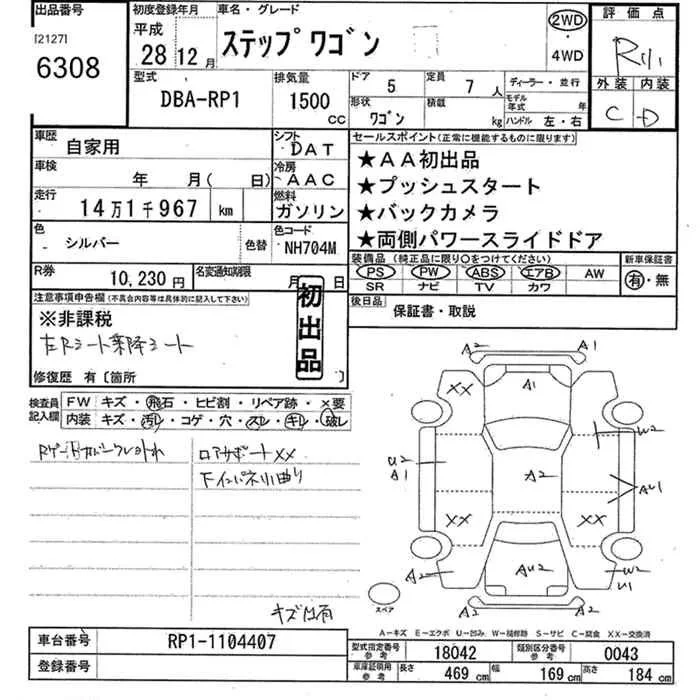 出品番号
[2127]
6308
初度登録年月
平成
28 12月
車名・グレード
ステップ ワゴン
2WD
・
4WD
評価点
外装 内装
C D
型式
DBA-RP1
排気量
1500
CC
ドア 5
定員 7 人
形状 ワゴン
積載 kg
ディーラー・並行
モデル年式 年
ハンドル 左・右
車歴
自家用
シフト
DAT
車検
年 月( 日)
冷房
AAC
走行
14万1千967 km
燃料
ガソリン
色
シルバー
色替
色コード
NH704M
R券
10,230円
名変通知期限
月 日
セールスポイント(正常に機能するものに限ります)
★AA初出品
★プッシュスタート
★バックカメラ
★両側パワースライドドア
装備品(純正品に限り○をつけてください)
PS PW ABS エアB AW
SR ナビ TV カワ
新車保証書
有・無
後日品
保証書・取説
注意事項申告欄(不具合内容等は具体的に記入して下さい)
※非課税
左Rシート乗降シート
初出品
修復歴 有〔箇所
検査員記入欄
FW キズ・飛石・ヒビ割・リペア跡・×要
内装 キズ・汚レ・コゲ・穴・スレ・キレ・破レ
ロアサポートXX
下インパネ小曲り
キズ凹有
A2 A1
XX A1
W2
U2
A1
A2
AU1
XX XX
A2 AU2 W2
U1
A2 A2
スペア
A-キズ E-エクボ U-凹み W-補修跡 S-サビ C-腐食 XX-交換済
車台番号
RP1-1104407
登録番号
型式指定番号
参考
18042
類別区分番号
参考
0043
車庫証明用
参考
長さ 469 cm 幅 169 cm 高さ 184 cm